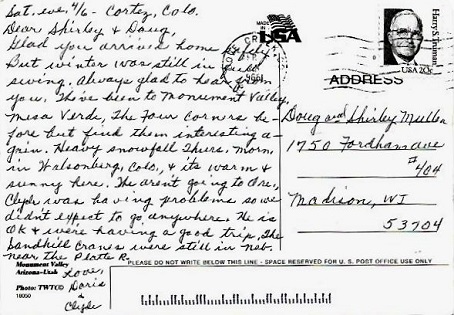 Sat. eve. 4/6 - Cortez, Colo.
Dear Shirley & Doug,
Glad you arrived home safely
But winter was still in full
swing. Always glad to hear from
you. I have been to Monument Valley,
Mesa Verde, The Four Corners be-
fore but find them interesting a-
gain. Heavy snowfall Thurs. morn.
in Walsenberg, Colo., & its warm &
sunny here. We aren't going to Ore.,
Clyde was having problems so we
didn't expect to go anywhere. He is
OK & we're having a good trip. The
Sandhill Cranes were still in Neb.
near the Platte R.
Love,
Doris
&
Clyde
Monument Valley
Arizona-Utah
Photo: TWT©
18050
MADE IN
USA
Harry S. Truman
USA 20c
ADDRESS
Doug and Shirley
1750 Fordham ave
#404
Madison, WI
53704
PLEASE DO NOT WRITE BELOW THIS LINE - SPACE RESERVED FOR U.S. POST OFFICE USE ONLY